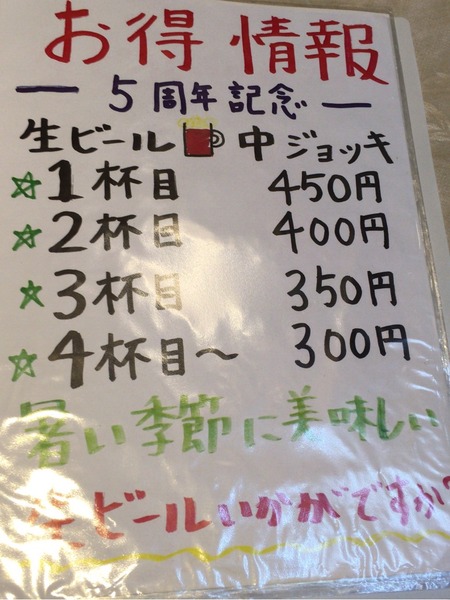 お得情報
5周年記念
生ビール 中ジョッキ
☆1杯目 450円
☆2杯目 400円
☆3杯目 350円
☆4杯目〜 300円
暑い季節に美味しい
生ビールいかがですか?